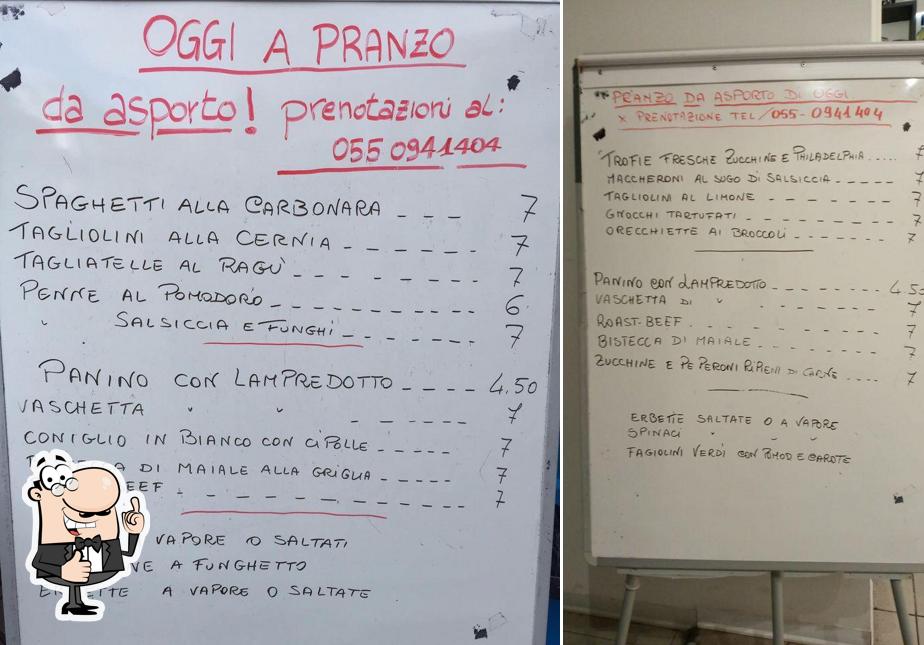 OGGI A PRANZO
da asporto! prenotazioni al:
055 0941404
SPAGHETTI ALLA CARBONARA --- 7
TAGLIOLINI ALLA CERNIA ------ 7
TAGLIATELLE AL RAGÙ ------- 7
PENNE AL POMODORO --------- 6
" SALSICCIA E FUNGHI ------ 7
PANINO CON LAMPREDOTTO ---- 4.50
VASCHETTA " " ----- 7
CONIGLIO IN BIANCO CON CIPOLLE ---- 7
DI MAIALE ALLA GRIGLIA ----- 7
EEF - - - - - - - - - 7
VAPORE O SALTATI
VE A FUNGHETTO
A VAPORE O SALTATE
PRANZO DA ASPORTO DI OGGI
X PRENOTAZIONE TEL/055-0941404
TROFIE FRESCHE ZUCCHINE E PHILADELPHIA.... 7
MACCHERONI AL SUGO DI SALSICCIA ----- 7
TAGLIOLINI AL LIMONE ------ 7
GNOCCHI TARTUFATI ------ 7
ORECCHIETTE AI BROCCOLI ------ 7
PANINO CON LAMPREDOTTO ------ 4.50
VASCHETTA DI " ------ 7
ROAST-BEEF ------ 7
BISTECCA DI MAIALE ------ 7
ZUCCHINE E PEPERONI RIPIENI DI CARNE .... 7
ERBETTE SALTATE O A VAPORE
SPINACI " " "
FAGIOLINI VERDI CON POMOD E CAROTE